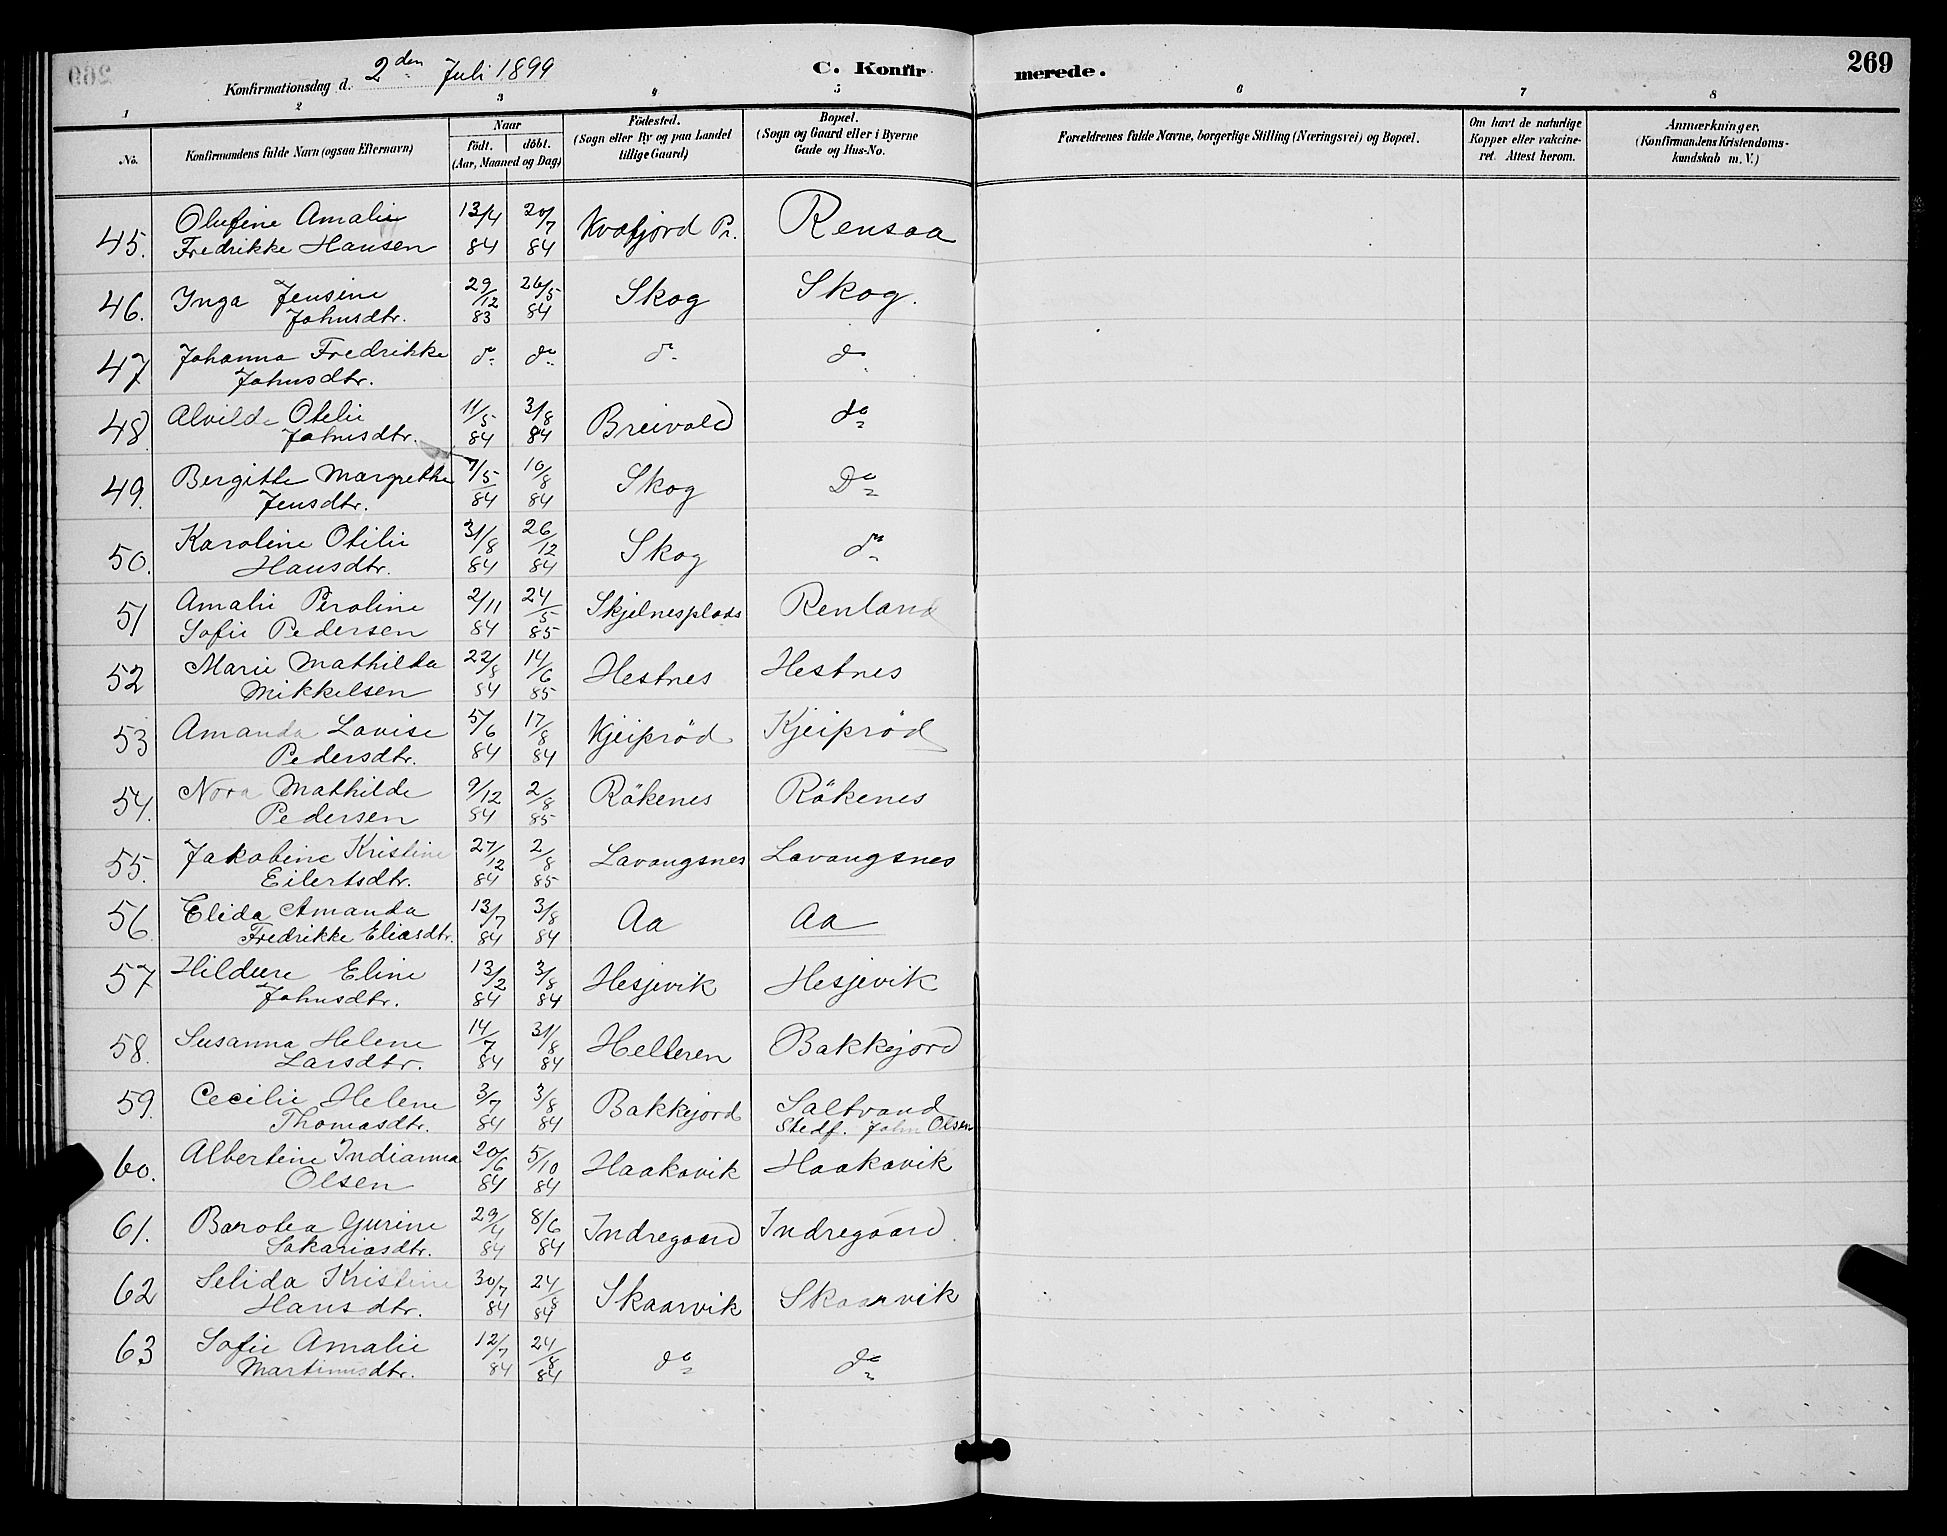 269
Konfirmationsdag d. 2den Juli 1899
C. Konfirmerede.
1 2 3 4 5 6 7 8
No.
Konfirmandens fulde Navn (ogsaa Efternavn)
Naar
födt. döbt.
(Aar, Maaned og Dag)
Födested.
(Sogn eller By og paa Landet
tillige Gaard)
Bopæl.
(Sogn og Gaard eller i Byerne
Gade og Hus-No.
Forældrenes fulde Navne, borgerlige Stilling (Næringsvei) og Bopæl.
Om havt de naturlige
Kopper eller vakcine-
ret. Attest herom.
Anmærkninger.
(Konfirmandens Kristendoms-
kundskab m. V.)
45. Olufine Amalie Fredrikke Hansen 13/4 84 20/7 84 Kvæfjord Pr. Rensaa
46. Inga Jensine Johnsdtr. 29/12 83 26/5 84 Skog Skog.
47 Johanna Fredrikke Johnsdtr. do do do do
48. Alvilde Otelie Johnsdtr. 11/5 84 3/8 84 Breivold do
49. Bergitte Margrethe Jensdtr. 7/5 84 10/8 84 Skog Do
50. Karoline Otilie Hansdtr. 31/8 84 26/12 84 Skog do
51 Amalie Peroline Sofie Pedersen 2/11 84 24/5 85 Skjelnesplads Renland
52 Marie Mathilda Mikkelsen 22/8 84 14/6 85 Hestnes Hestnes
53 Amanda Lovise Pedersdtr. 5/6 84 17/8 84 Kjeiprød Kjeiprød
54. Nora Mathilde Pedersen 9/12 84 2/8 85 Rökenes Rökenes
55. Jakobine Kristine Eilertsdtr. 27/12 84 2/8 85 Lavangsnes Lavangsnes
56 Elida Amanda Fredrikke Eliasdtr. 13/7 84 3/8 84 Aa Aa
57 Hildure Eline Johnsdtr. 13/2 84 3/8 84 Hesjevik Hesjevik
58. Susanna Helene Larsdtr. 14/7 84 31/8 84 Helleren Bakkejord
59. Cecilie Helene Thomasdtr. 3/7 84 3/8 84 Bakkejord Saltvand
Stedf. John Olsen
60. Albertine Indianna Olsen 20/6 84 5/10 84 Haakavik Haakavik
61. Barolea Gurine Sakariasdtr. 29/4 84 8/6 84 Indregaard Indregaard.
62 Selida Kristine Hansdtr. 30/7 84 24/8 84 Skaarvik Skaarvik
63 Sofie Amalie Martinusdtr. 12/7 84 24/8 84 do do